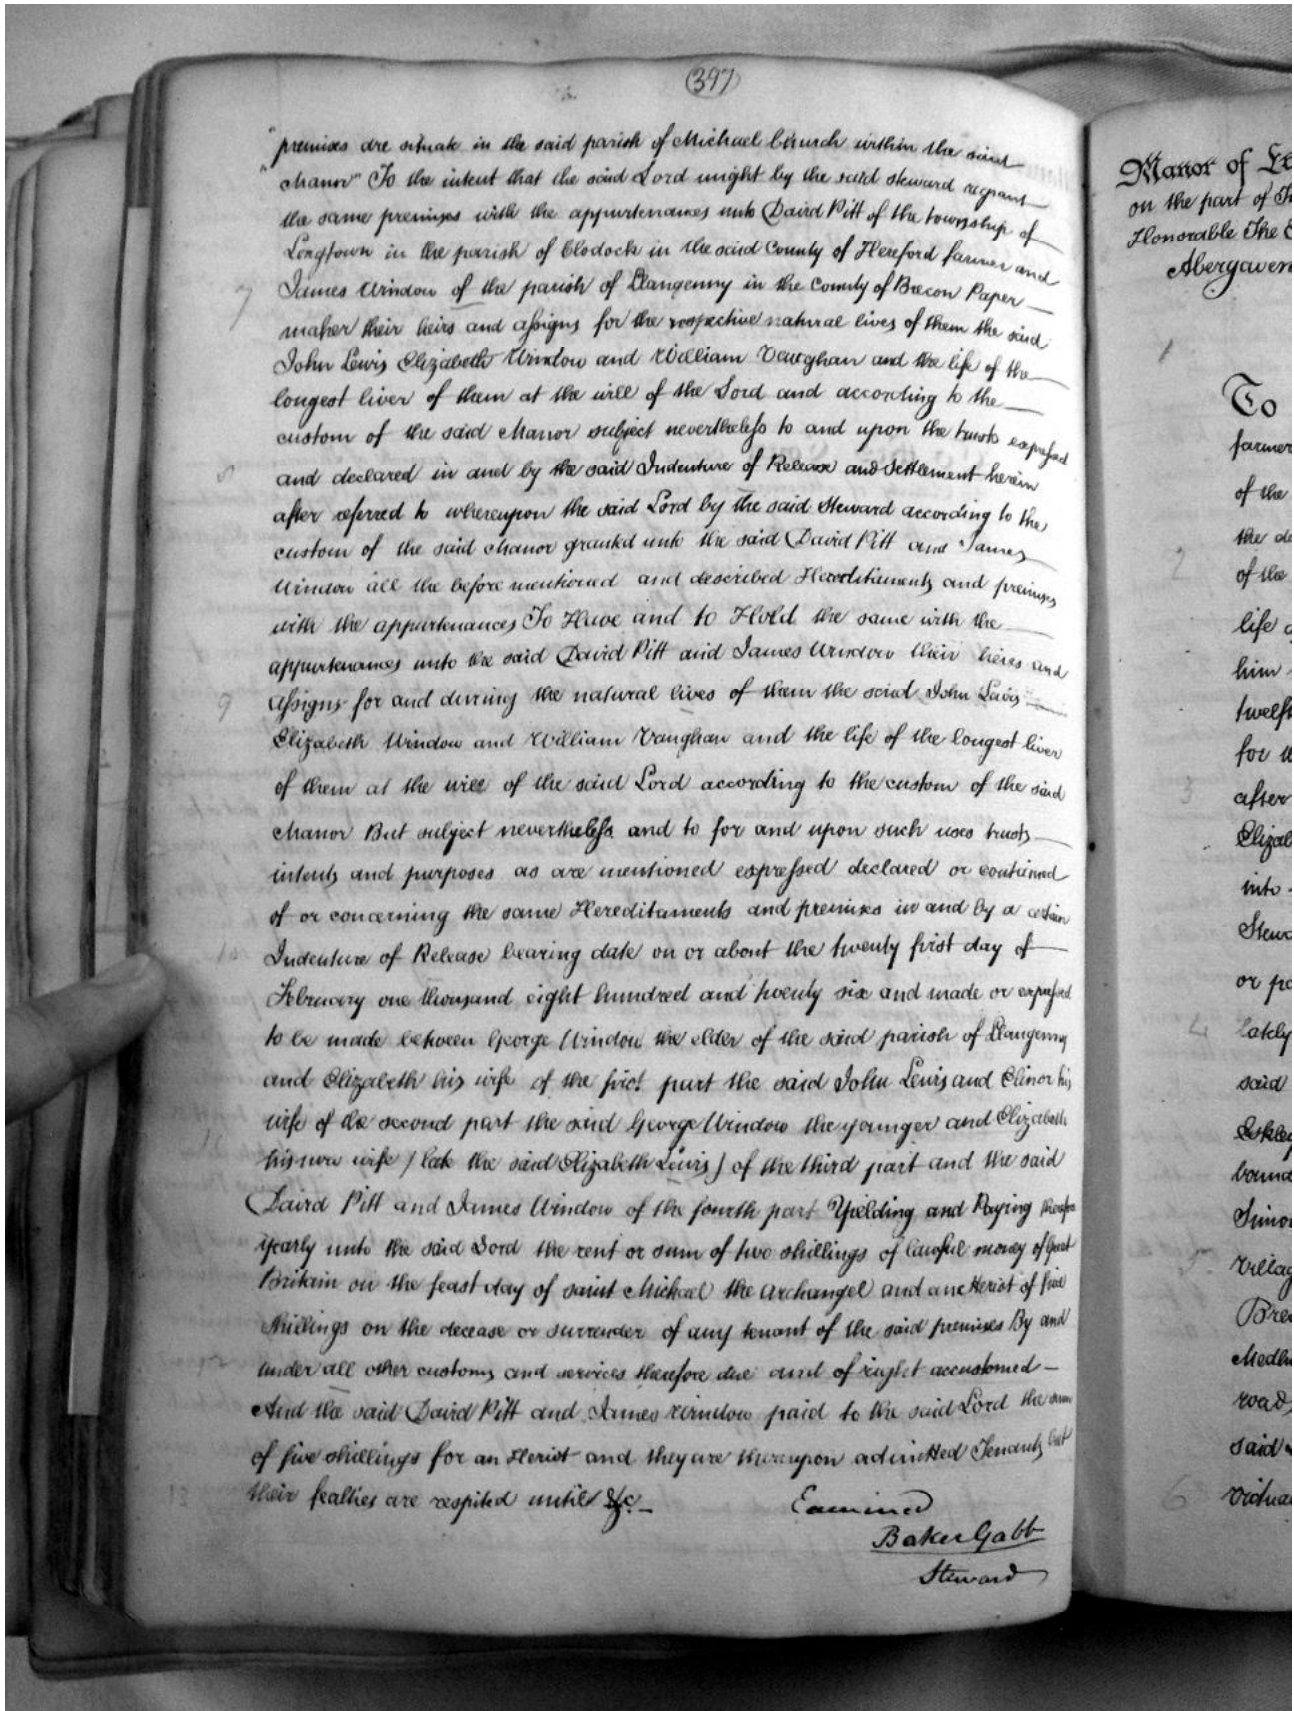 (397)
"premises are situate in the said parish of Michael Church within the said
"Manor" To the intent that the said Lord might by the said steward regrant
the same premises with the appurtenances unto David Pitt of the township of
Longtown in the parish of Clodock in the said County of Hereford farmer and
7 James Window of the parish of Llangenny in the County of Brecon Paper
maker their heirs and assigns for the respective natural lives of them the said
John Lewis Elizabeth Window and William Vaughan and the life of the
longest liver of them at the will of the Lord and according to the
custom of the said Manor subject nevertheless to and upon the trusts expressed
8 and declared in and by the said Indenture of Release and Settlement herein
after referred to whereupon the said Lord by the said Steward according to the
custom of the said Manor granted unto the said David Pitt and James
Window all the before mentioned and described Hereditaments and premises
with the appurtenances To Have and to Hold the same with the
appurtenances unto the said David Pitt and James Window their heirs and
9 assigns for and during the natural lives of them the said John Lewis
Elizabeth Window and William Vaughan and the life of the longest liver
of them at the will of the said Lord according to the custom of the said
Manor But subject nevertheless and to for and upon such uses trusts
intents and purposes as are mentioned expressed declared or contained
of or concerning the same Hereditaments and premises in and by a certain
10 Indenture of Release bearing date on or about the twenty first day of
February one thousand eight hundred and twenty six and made or expressed
to be made between George Window the elder of the said parish of Llangenny
and Elizabeth his wife of the first part the said John Lewis and Elinor his
wife of the second part the said George Window the younger and Elizabeth
his now wife (late the said Elizabeth Lewis) of the third part and the said
David Pitt and James Window of the fourth part Yielding and Paying therefore
yearly unto the said Lord the rent or sum of two shillings of lawful money of Great
Britain on the feast day of saint Michael the Archangel and one Heriot of five
shillings on the decease or surrender of any tenant of the said premises By and
under all other customs and services therefore due and of right accustomed
And the said David Pitt and James Window paid to the said Lord the sum
of five shillings for an Heriot and they are thereupon admitted Tenants but
their fealties are respited until &c.
Examined
Baker Gabb
Steward
Manor of
on the part of
Honorable The
Abergaven
1
To
farmer
of the
the
2 of the
life
him
twelf
for
3 after
Elizab
into
Stew
or
4 lately
said
bound
Simon
5 Villag
Bre
Medl
road
said
6